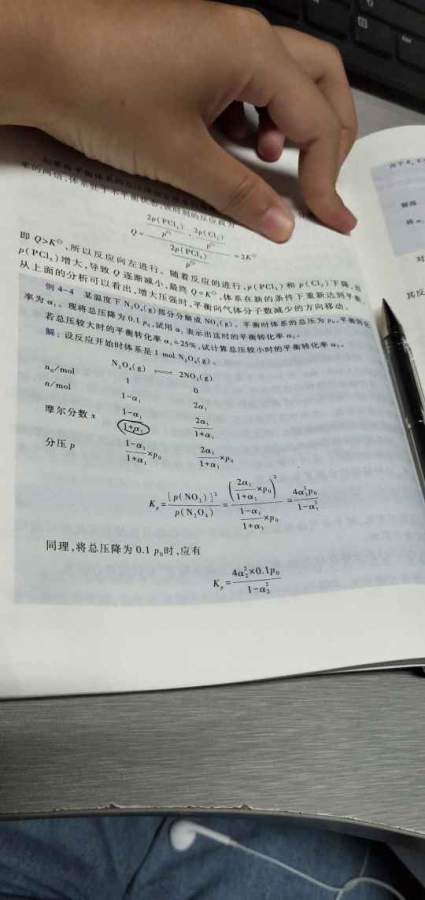 Q= 2p(PCl₃)/p⊖ · 2p(Cl₂)/p⊖ / 2p(PCl₅)/p⊖ =2K⊖
即 Q>K⊖,所以反应向左进行。随着反应的进行,p(PCl₃)和 p(Cl₂)下降,
p(PCl₅)增大,导致 Q 逐渐减小,最终 Q=K⊖,体系在新的条件下重新达到平衡。
从上面的分析可以看出,增大压强时,平衡向气体分子数减少的方向移动。
例 4-4 某温度下 N₂O₄(g)部分分解成 NO₂(g)。平衡时体系的总压为 p₀,平衡转化
率为 α₁。现将总压降为 0.1 p₀,试用 α₁ 表示出这时的平衡转化率 α₂。
若总压较大时的平衡转化率 α₁=25%,试计算总压较小时的平衡转化率 α₂。
解:设反应开始时体系是 1 mol N₂O₄(g)。
N₂O₄(g) ⇌ 2NO₂(g)
n₀/mol 1 0
n/mol 1-α₁ 2α₁
摩尔分数 x (1-α₁)/(1+α₁) 2α₁/(1+α₁)
分压 p (1-α₁)/(1+α₁)×p₀ 2α₁/(1+α₁)×p₀
Kₚ= [p(NO₂)]²/p(N₂O₄) = (2α₁/(1+α₁)×p₀)² / ((1-α₁)/(1+α₁)×p₀) = 4α₁²p₀/(1-α₁²)
同理,将总压降为 0.1 p₀时,应有
Kₚ= 4α₂²×0.1p₀/(1-α₂²)